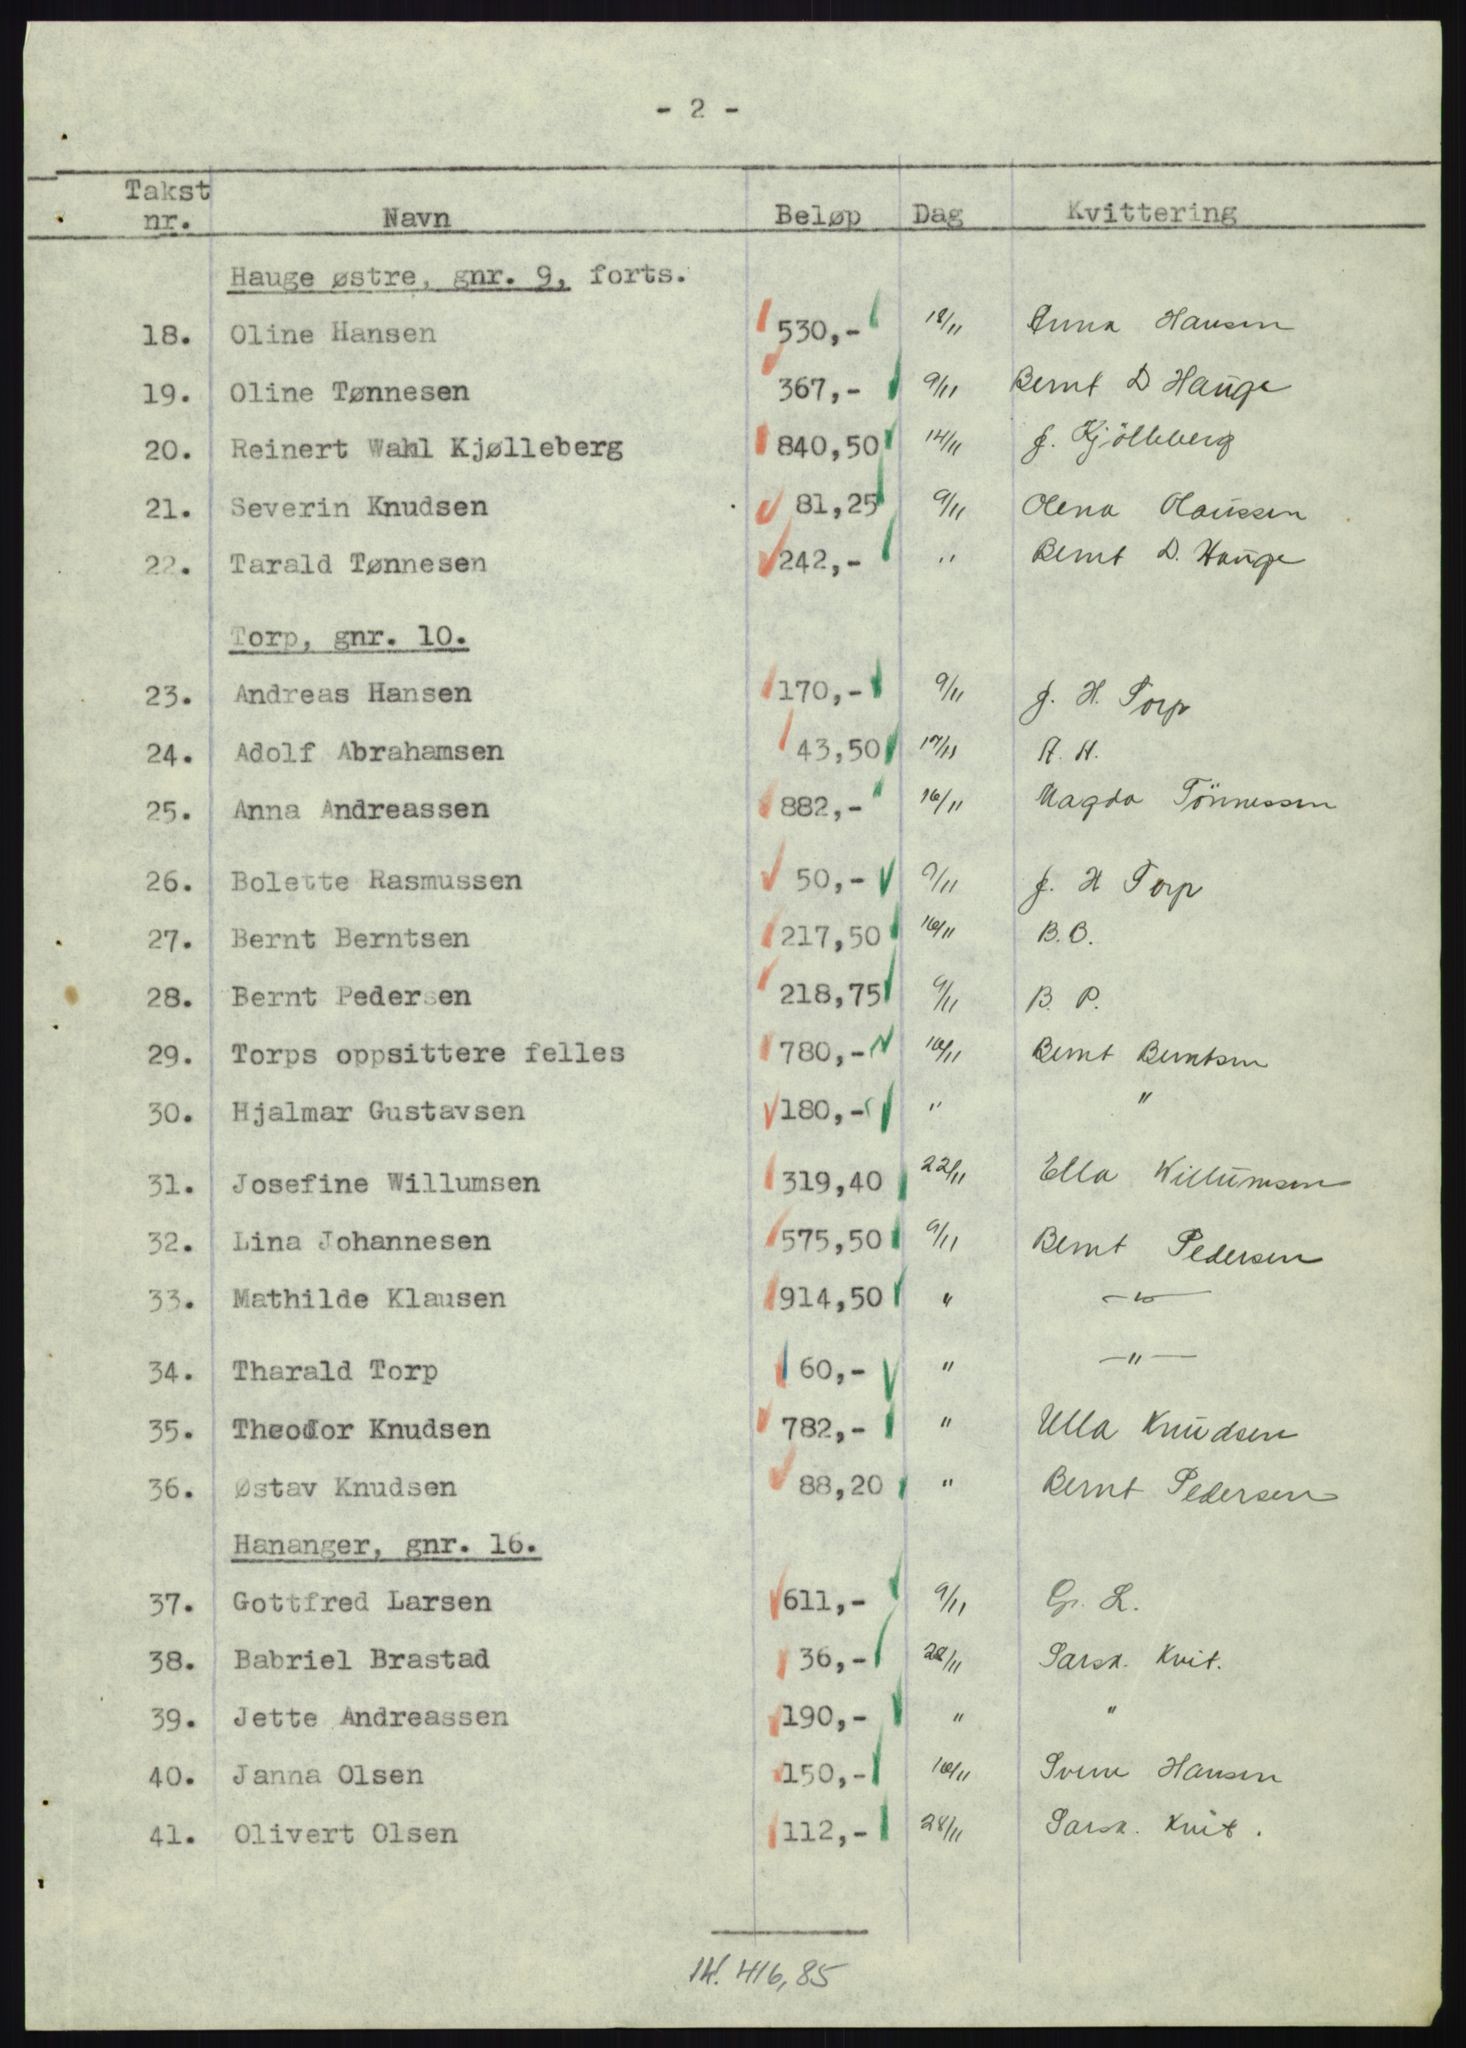 - 2 -
Takst nr. Navn Beløp Dag Kvittering
Hauge østre, gnr. 9, forts.
18. Oline Hansen 530,- 18/11 Anna Hansen
19. Oline Tønnesen 367,- 9/11 Bernt D Hauge
20. Reinert Wahl Kjølleberg 840,50 14/11 J. Kjölleberg
21. Severin Knudsen 81,25 9/11 Olena Olaussen
22. Tarald Tønnesen 242,- " Bernt D. Hauge
Torp, gnr. 10.
23. Andreas Hansen 170,- 9/11 J. H. Torp
24. Adolf Abrahamsen 43,50 17/11 A. A.
25. Anna Andreassen 882,- 16/11 Magda Tönnessen
26. Bolette Rasmussen 50,- 9/11 J. H Torp
27. Bernt Berntsen 217,50 16/11 B. B.
28. Bernt Pedersen 218,75 9/11 B. P.
29. Torps oppsittere felles 780,- 16/11 Bernt Berntsen
30. Hjalmar Gustavsen 180,- " "
31. Josefine Willumsen 319,40 22/11 Ella Willumsen
32. Lina Johannesen 575,50 9/11 Bernt Pedersen
33. Mathilde Klausen 914,50 " -"-
34. Tharald Torp 60,- " -"-
35. Theodor Knudsen 782,- " Ulla Knudsen
36. Østav Knudsen 88,20 " Bernt Pedersen
Hananger, gnr. 16.
37. Gottfred Larsen 611,- 9/11 G. L.
38. Babriel Brastad 36,- 28/11 Særsk. Kvit.
39. Jette Andreassen 190,- " "
40. Janna Olsen 150,- 16/11 Hansen
41. Olivert Olsen 112,- 28/11 Særsk. Kvit.
14.416,85